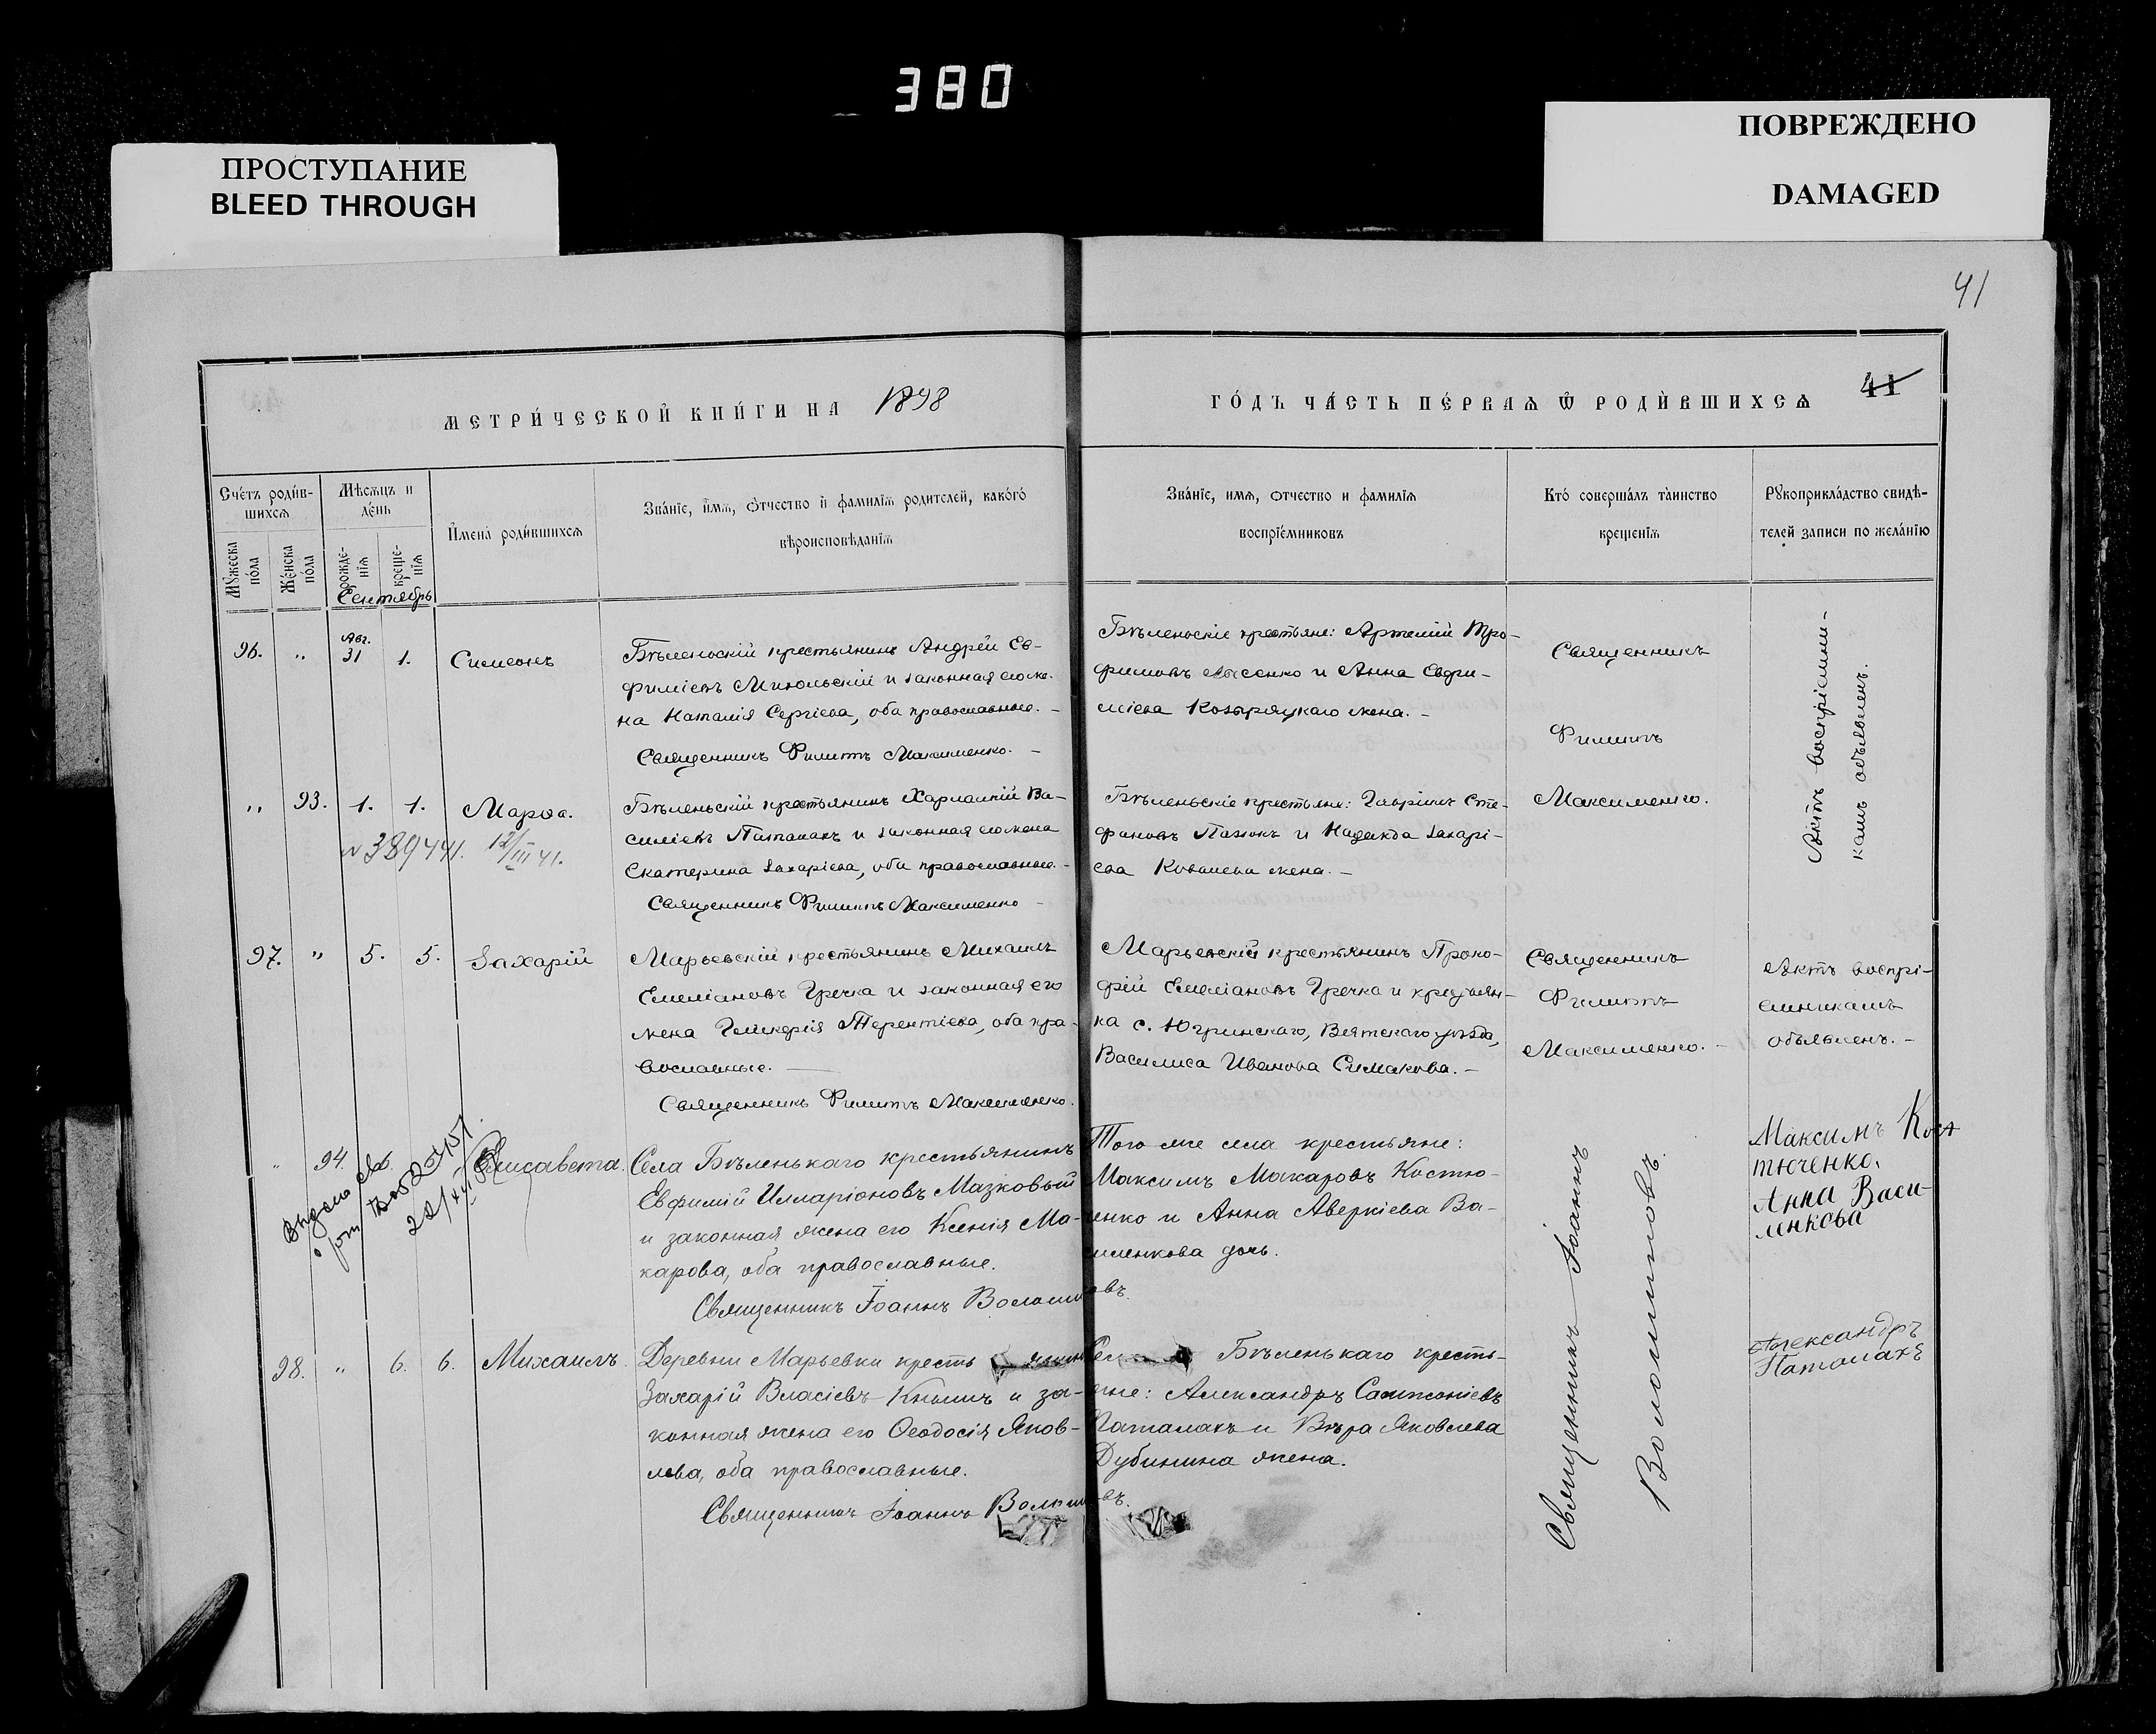 380
ПРОСТУПАНИЕ
BLEED THROUGH
ПОВРЕЖДЕНО
DAMAGED
41
МЕТРИ́ЧЕСКОЙ КНИ́ГИ НА 1898
ГО́ДЪ ЧА́СТЬ ПЕ́РВАѦ Ѡ РОДИ́ВШИХСѦ 41
Сче́тъ роди́в-
шихсѧ
Мѣсѧцъ и
де́нь
Мꙋ́жеска
по́ла
Же́нска
по́ла
рожде-
нїѧ
креще-
нїѧ
И҆мена̀ роди́вшихсѧ
Зва́нїе, и҆́мѧ, ѻ҆́тчество и҆ фамилїѧ родителей, како́гѡ
вѣроисповѣданїѧ
Зва́нїе, имѧ, ѻтчество и фамилїѧ
воспрїе́мниковъ
Кто́ соверша́лъ та́инство
крещенїѧ
Рꙋкоприкла́дство свидѣ-
телей записи по жела́нїю
Сентябрь
96. " Авг. 31 1. Симеонъ
Бѣленьскій крестьянинъ Андрей Ев-
фиміевъ и законная его же-
на Наталія Сергіева, оба православные. –
Священникъ Филиппъ Максименко. –
Бѣленьскіе крестьяне: Артемій Тро-
фимовъ Лысенко и Анна Евфи-
міева Козыряцкаго жена. –
Священникъ
Филиппъ
Максименко.
Актъ воспріемни-
камъ объявленъ.
" 93. 1. 1. Марѳа.
N 389441. 12/III 41.
Бѣленьскій крестьянинъ Харлампій Ва-
силіевъ Паталахъ и законная его жена
Екатерина Захаріева, оба православные. –
Священникъ Филиппъ Максименко –
Бѣленьскіе крестьяне: Гавріилъ Сте-
фановъ и Надежда Захарі-
ева Ковалева жена. –
97. " 5. 5. Захарій
Марьевскій крестьянинъ Михаилъ
Емеліановъ Гречка и законная его
жена Гликерія Терентіева, оба пра-
вославные. –
Священникъ Филиппъ Максименко.
Марьевскій крестьянинъ Проко-
фій Емеліановъ Гречка и крестьян-
ка с. Югринскаго, Вятскаго уѣзда,
Василиса Иванова Симакова. –
Священникъ
Филиппъ
Максименко. –
Актъ воспрі-
емникамъ
объявленъ. –
" 94. Елисавета.
Села Бѣленькаго крестьянинъ
Евфимій Илларіоновъ Мазковый
и законная жена его Ксенія Ма-
карова, оба православные.
Священникъ Іоаннъ Волошиновъ.
Того же села крестьяне:
Максимъ Макаровъ Костю-
ченко и Анна Аверкіева Ва-
силенкова дочь.
Священникъ Іоаннъ
Волошиновъ.
Максимъ Кос
тюченко.
Анна Васи-
ленкова
98. " 6. 6. Михаилъ.
Деревни Марьевки крестьянинъ
Захарій Власіевъ Книшъ и за-
конная жена его Ѳеодосія Яков-
лева, оба православные.
Священникъ Іоаннъ Волошиновъ.
Села Бѣленькаго кресть-
яне: Александръ Сампсоніевъ
Паталахъ и Вѣра Яковлева
Дубинина жена.
Александръ
Паталахъ